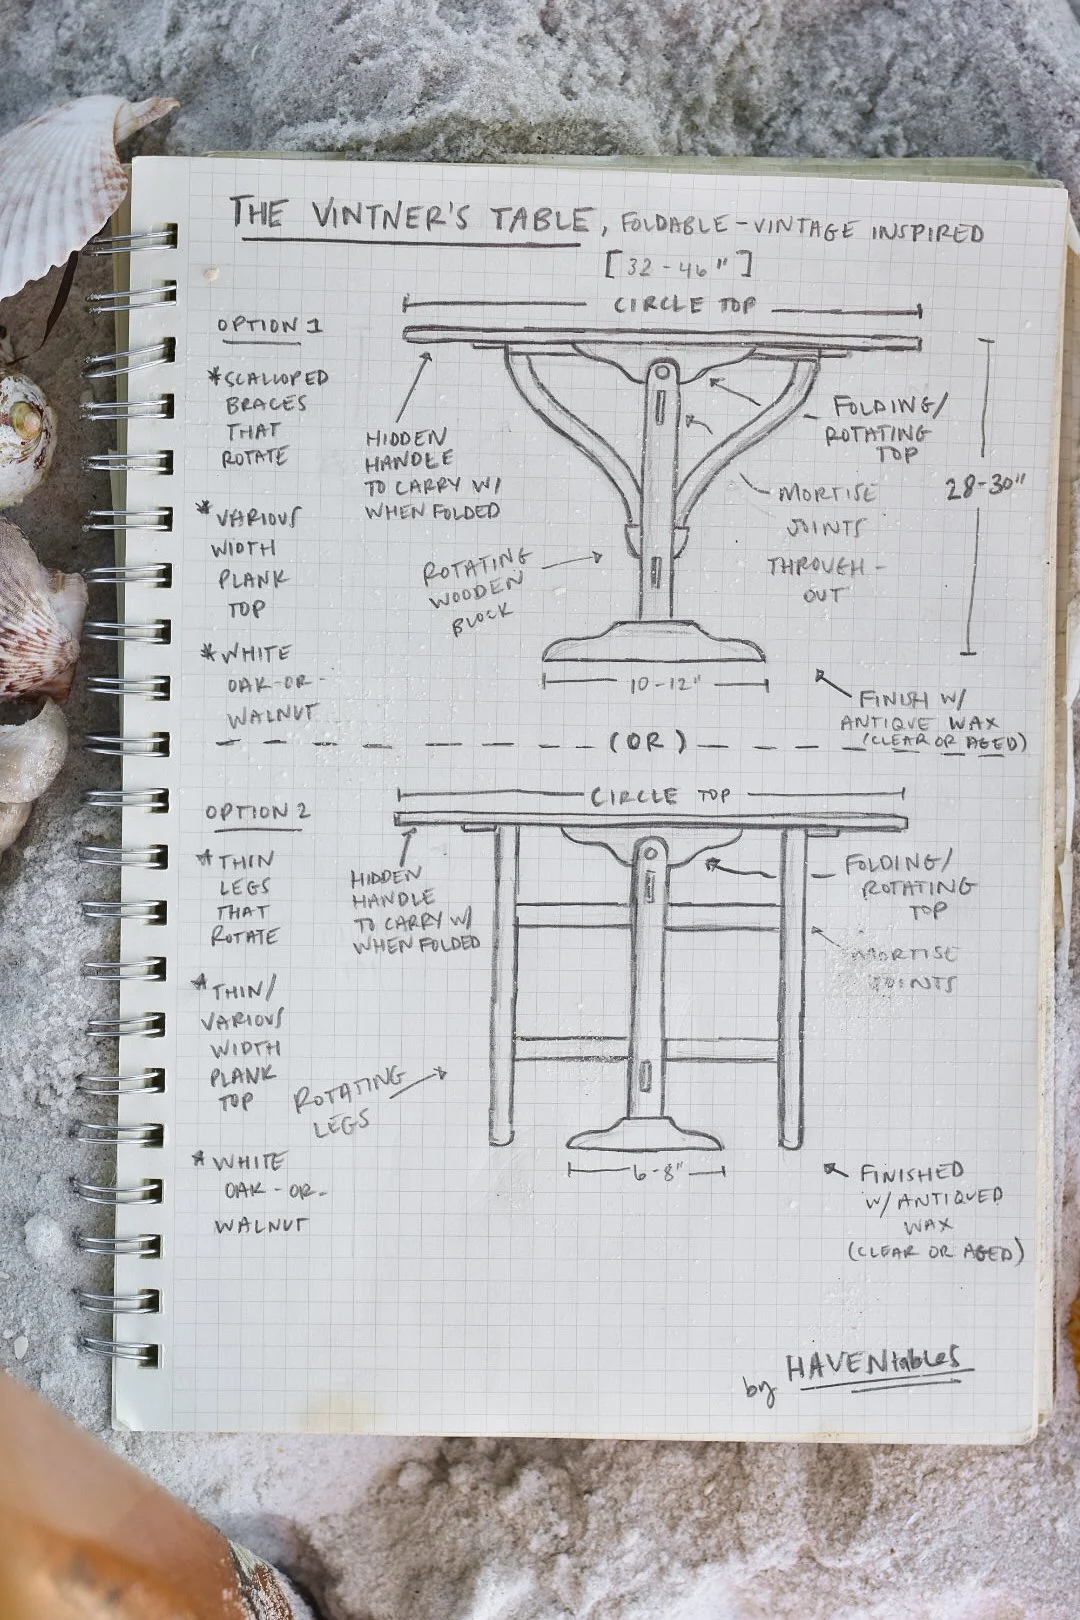 THE VINTNER'S TABLE, FOLDABLE-VINTAGE INSPIRED
[32-46"]
CIRCLE TOP
OPTION 1
*SCALLOPED
BRACES
THAT
ROTATE
*VARIOUS
WIDTH
PLANK
TOP
*WHITE
OAK-OR-
WALNUT
HIDDEN
HANDLE
TO CARRY W/
WHEN FOLDED
ROTATING
WOODEN
BLOCK
FOLDING/
ROTATING
TOP
28-30"
MORTISE
JOINTS
THROUGH-
OUT
10-12"
FINISH W/
ANTIQUE WAX
(CLEAR OR AGED)
(OR)
CIRCLE TOP
OPTION 2
*THIN
LEGS
THAT
ROTATE
*THIN/
VARIOUS
WIDTH
PLANK
TOP
*WHITE
OAK-OR-
WALNUT
HIDDEN
HANDLE
TO CARRY W/
WHEN FOLDED
ROTATING
LEGS
FOLDING/
ROTATING
TOP
MORTISE
JOINTS
6-8"
FINISHED
W/ANTIQUED
WAX
(CLEAR OR AGED)
by HAVENtables